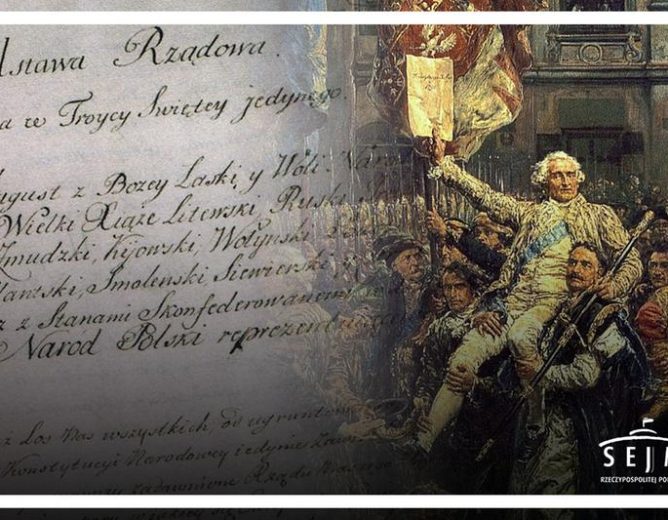 Ustawa Rządowa.
a w Troycy Swiętey jedynego.
August z Bozey Łaski, y Woli
Wielki Xiąże Litewski, Ruski
Zmudzki, Kijowski, Wołyński
lantski, Smolenski, Siewierski, y
z z Stanami Skonfederowanemi
Narod Polski
z Los Nas wszystkich od
Konstytucyi Narodowey iedynie
zadawnione Rządu
SEJM
RZECZYPOSPOLITEJ PO